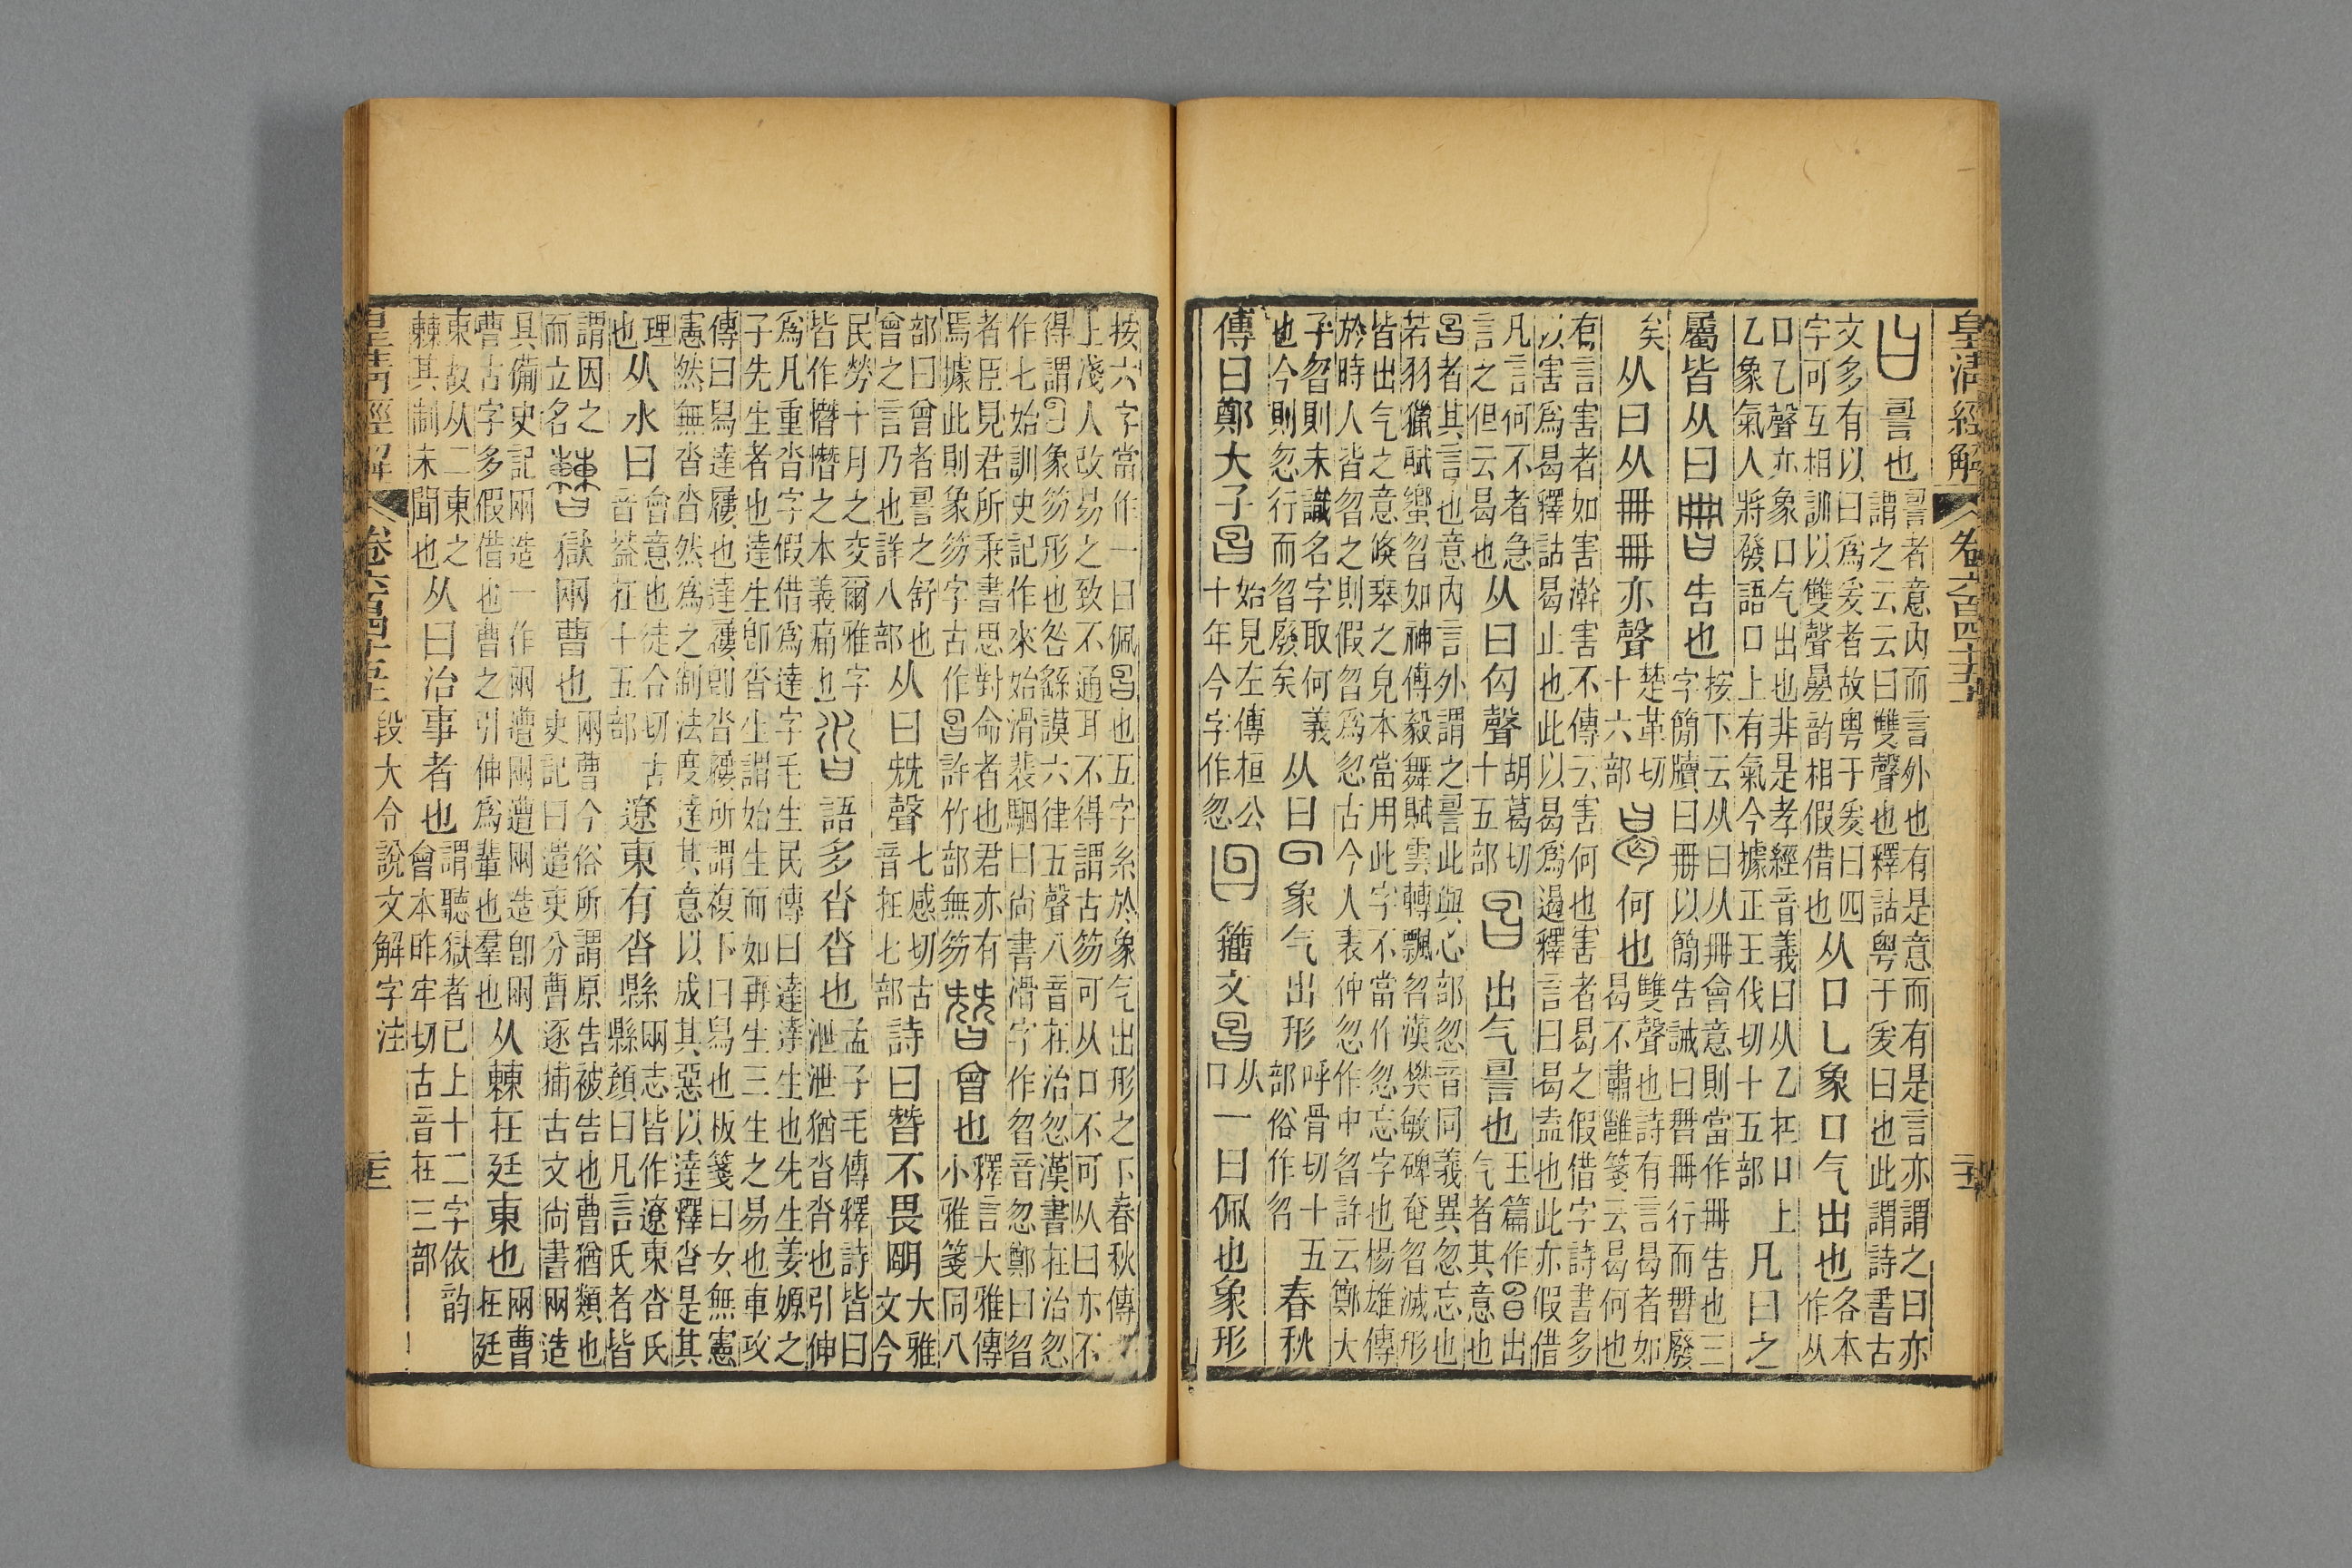 皇清經解 卷六百四十五
䛐也
䛐者意內而言外也有是意而有是言亦謂之曰亦
謂之云云曰雙聲也釋詁粤于爰曰也此謂詩書古
文多有以曰爲爰者故粤于爰曰四
字可互相訓以雙聲曡韵相假借也
从口乚象口气出也
各本
作从
口乙聲亦象口气出也非是孝經音義曰从乙在口上
乙象氣人將發語口上有氣今據正王伐切十五部
凡曰之
屬皆从曰
告也
按下云从曰从冊會意則當作冊告也三
字簡牘曰冊以簡告誡曰𣌭冊行而𣌭廢
矣
从曰从冊冊亦聲
楚革切
十六部
何也
雙聲也詩有言曷者如
曷不肅雝箋云曷何也
有言害者如害澣害不傳云害何也害者曷之假借字詩書多
以害爲曷釋詁曷止也此以曷爲遏釋言曰曷盍也此亦假借
凡言何不者急
言之但云曷也
从曰匃聲
胡葛切
十五部
出气䛐也
玉篇作𡆩出
气者其意也
曶者其言也意內言外謂之䛐此與心部忽音同義異忽忘也
若羽獵賦蠁曶如神傅毅舞賦雲轉飄曶漢樊敏碑奄曶滅形
皆出气之意喚㮙之皃本當用此字不當作忽忘字也楊雄傳
於時人皆曶之則假曶爲忽古今人表仲忽作中曶許云鄭大
子曶則未識名字取何義
也今則忽行而曶廢矣
从曰
象气出形
呼骨切十五
部俗作曶
春秋
傳曰鄭大子曶
始見左傳桓公
十年今字作忽
籒文曶
从
口
一曰佩也象形
按六字當作一曰佩曶也五字系於象气出形之下春秋傳
上淺人改易之致不通耳不得謂古笏可从口不可从曰亦不
得謂𡆩象笏形也咎繇謨六律五聲八音在治忽漢書在治忽
作七始訓史記作來始滑裴駰曰尙書滑字作曶音忽鄭曰曶
者臣見君所秉書思對命者也君亦有
焉據此則象笏字古作曶許竹部無笏
曾也
釋言大雅傳
小雅箋同八
部曰曾者䛐之舒也
曾之言乃也詳八部
从曰兓聲
七感切古
音在七部
詩曰朁不畏朙
大雅
文今
民勞十月之交爾雅字
皆作憯憯之本義痛也
語多沓沓也
孟子毛傳釋詩皆曰
泄泄猶沓沓也引伸
爲凡重沓字假借爲達字毛生民傳曰達達生也先生姜嫄之
子先生者也達生卽沓生謂始生而如再生三生之易也車攻
傳曰舄達屨也達屨卽沓屨所謂複下曰舄也板箋曰女無憲
憲然無沓沓然爲之制法度達其意以成其惡以達釋沓是其
理
也
从水曰
會意也徒合切古
音葢在十五部
遼東有沓縣
兩志皆作遼東沓氏
縣顔曰凡言氏者皆
謂因之
而立名
獄兩曹也
兩曹今俗所謂原告被告也曹猶類也
史記曰遣吏分曹逐捕古文尙書兩造
具備史記兩造一作兩遭兩遭兩造卽兩
曹古字多假借也曹之引伸爲輩也羣也
从㯥在廷東也
兩曹
在廷
東故从二東之
㯥其制未聞也
从曰治事者也
謂聽獄者已上十二字依韵
會本昨牢切古音在三部
皇淸經解 卷六百四十五 段大令說文解字注